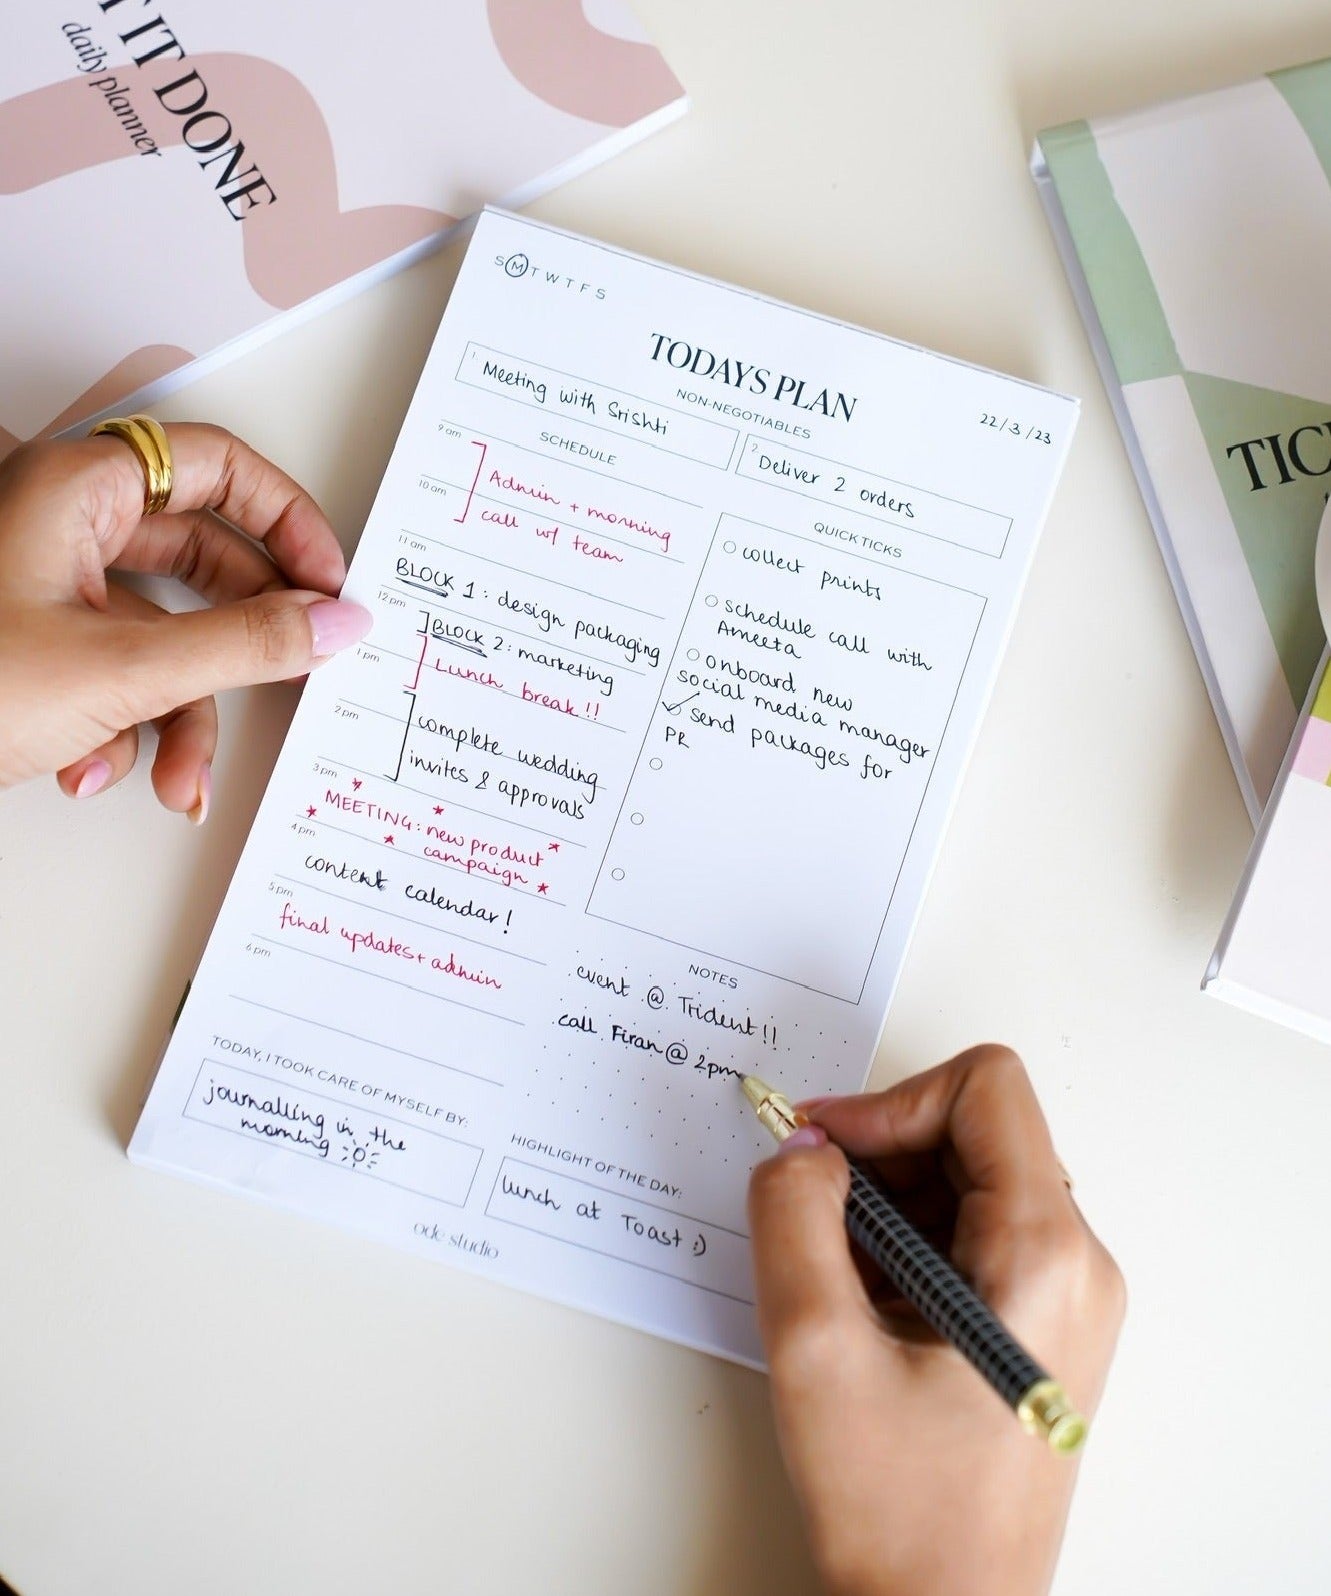 T IT DONE
daily planner
S M T W T F S
TODAYS PLAN
22/3/23
NON-NEGOTIABLES
1 Meeting with Srishti
2 Deliver 2 orders
SCHEDULE
9 am
Admin + morning
10 am
call w/ team
11 am
BLOCK 1: design packaging
12 pm
BLOCK 2: marketing
1 pm
Lunch break!!
2 pm
complete wedding
invites & approvals
3 pm
MEETING: new product
campaign
4 pm
content calendar!
5 pm
final updates+ admin
6 pm
QUICK TICKS
collect prints
schedule call with
Ameeta
onboard new
social media manager
send packages for
PR
NOTES
event @ Trident!!
call Firan @ 2pm
TODAY, I TOOK CARE OF MYSELF BY:
journalling in the
morning
HIGHLIGHT OF THE DAY:
lunch at Toast :)
ode studio
TIC